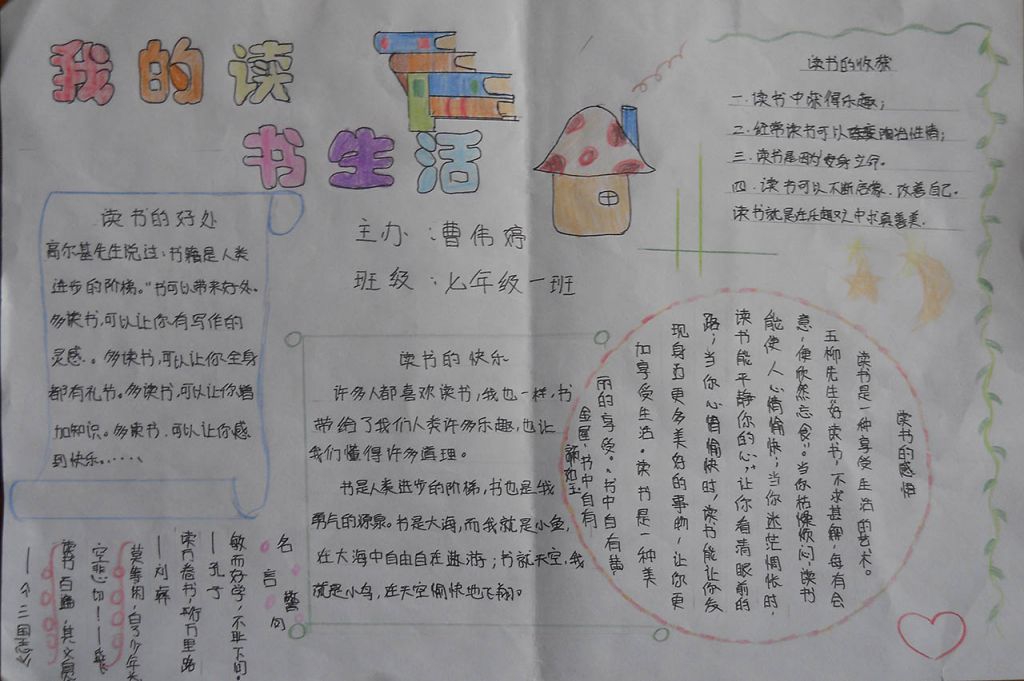 我的读
书生活
主办：曹伟婷
班级：七年级一班
读书的好处
高尔基先生说过：书籍是人类
进步的阶梯。"书可以带来好处。
多读书，可以让你有写作的
灵感.。多读书，可以让你全身
都有礼节。多读书，可以让你增
加知识。多读书.可以让你感
到快乐。……
读书的收获
一.读书中获得乐趣；
二.经常读书可以陶冶性情；
三.读书是因为安身立命。
四.读书可以不断启候.改善自己.
读书就是在乐趣中求真善美.
读书的快乐
许多人都喜欢读书，我也一样，书
带给了我们人类许多乐趣，也让
我们懂得许多道理。
书是人类进步的阶梯，书也是我
勇气的源泉。书是大海，而我就是小鱼，
在大海中自由自在遨游；书就天空，我
就是小鸟，在天空愉快地飞翔。
读书的感悟
读书是一种享受生活的艺术。
五柳先生"好读书，不求甚解，每有会
意，便欣然忘食"。当你枯燥烦闷，读书
能使人心情愉快；当你迷茫惆怅时，
读书能平静你的心，让你看清眼前的
路；当你心情愉快时，读书能让你发
现身边更多美好的事物，让你更
加享受生活。读书是一种美
丽的享受。"书中自有黄
金屋，书中自有
颜如玉
名言警句
敏而好学，不耻下问。
——孔子
读万卷书，行万里路
——刘彝
莫等闲，白了少年头
空悲切！——岳飞
读书百遍，其义自见
——《三国志》